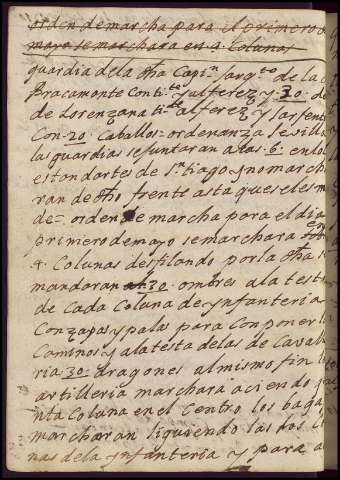 orden de marcha para el primero de
mayo se marchara en 4 Colunas
guardia de la dha Capn sargto de la
Bracamonte Con tite y alferez y 30 de
de Lorenzana tite alferez y sarjento
Con 20 Caballos = ordenanza sevilla
las guardias se juntaran a las 6 en los
estandartes de Stiago y no march
ran de dho frente asta que se les m
de = orden de marcha para el dia
primero de mayo se marchara en
4 Colunas desfilando por la dha
mandaran 30 ombres a la testa
de Cada Coluna de ynfanteria
Con zapas y palas para Componer
Caminos y a la testa de las de Cavale
ria 30 dragones al mismo fin
artilleria marchara aciendo qui
nta Coluna en el Centro los baga
marcharan siguiendo las dos Co
nas de la ynfanteria y para